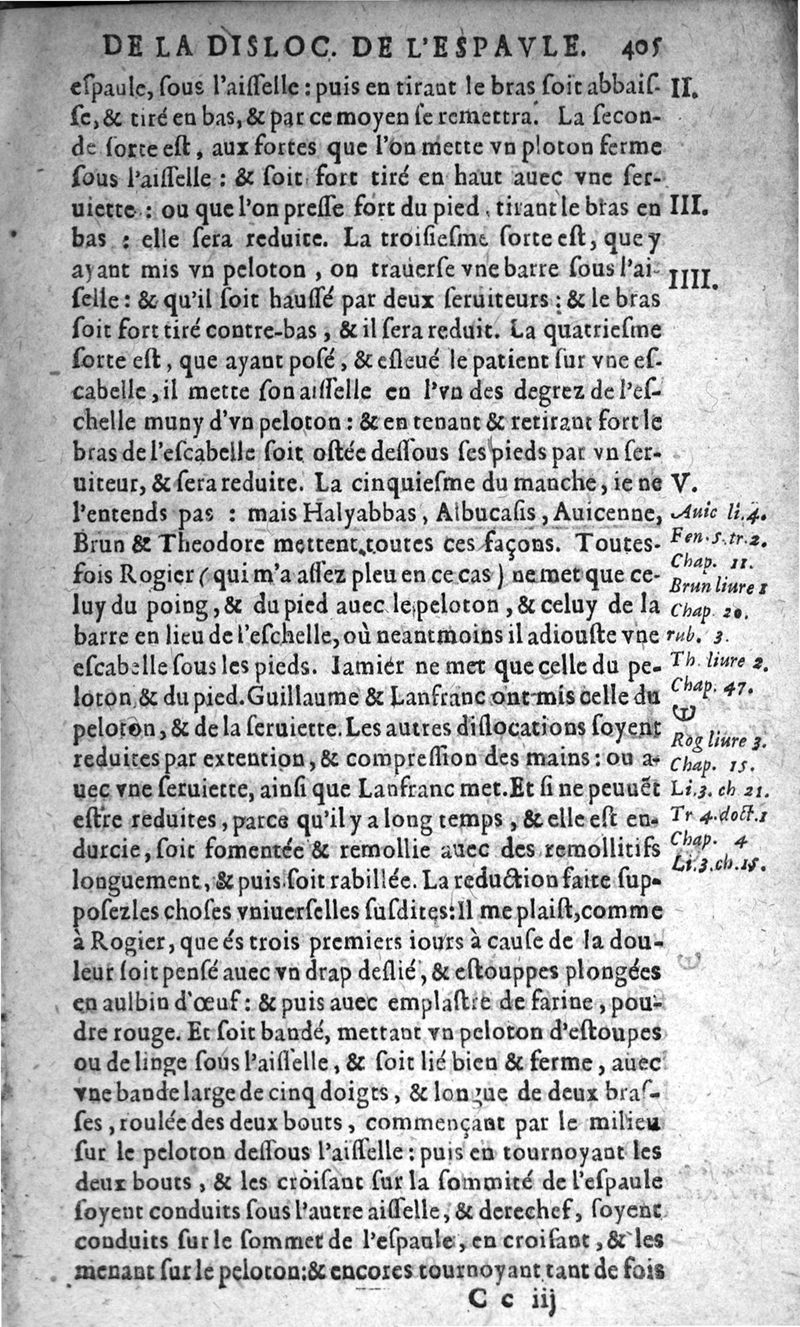 DE LA DISLOC. DE L'ESPAVLE. 405
eſpaule, ſous l'aiſſelle : puis en tirant le bras ſoit abbaiſ-
ſe, & tiré en bas, & par ce moyen ſe remettra. La ſecon-
de ſorte eſt, aux fortes que l'on mette vn ploton ferme
ſous l'aiſſelle : & ſoit fort tiré en haut auec vne ſer-
uiette : ou que l'on preſſe fort du pied, tirant le bras en
bas : elle ſera reduite. La troiſieſme ſorte eſt, que y
ayant mis vn peloton, on trauerſe vne barre ſous l'ai-
ſelle : & qu'il ſoit hauſſé par deux ſeruiteurs : & le bras
ſoit fort tiré contre-bas, & il ſera reduit. La quatrieſme
ſorte eſt, que ayant poſé, & eſleué le patient ſur vne eſ-
cabelle, il mette ſon aiſſelle en l'vn des degrez de l'eſ-
chelle muny d'vn peloton : & en tenant & retirant fort le
bras de l'eſcabelle ſoit oſtée deſſous ſes pieds par vn ſer-
uiteur, & ſera reduite. La cinquieſme du manche, ie ne
l'entends pas : mais Halyabbas, Albucaſis, Auicenne,
Brun & Theodore mettent toutes ces façons. Toutes-
fois Rogier (qui m'a aſſez pleu en ce cas) ne met que ce-
luy du poing, & du pied auec le peloton, & celuy de la
barre en lieu de l'eſchelle, où neantmoins il adiouſte vne
eſcabelle ſous les pieds. Iamier ne met que celle du pe-
loton & du pied. Guillaume & Lanfranc ont mis celle du
peloton, & de la ſeruiette. Les autres diſlocations ſoyent
reduites par extention, & compreſſion des mains : ou a-
uec vne ſeruiette, ainſi que Lanfranc met. Et ſi ne peuuēt
eſtre reduites, parce qu'il y a long temps, & elle eſt en-
durcie, ſoit fomentée & remollie auec des remollitifs
longuement, & puis ſoit rabillée. La reduction faite ſup-
poſez les choſes vniuerſelles ſuſdites: Il me plaiſt, comme
à Rogier, que és trois premiers iours à cauſe de la dou-
leur ſoit penſé auec vn drap deſlié, & eſtouppes plongées
en aulbin d'œuf : & puis auec emplaſtre de farine, pou-
dre rouge. Et ſoit bandé, mettant vn peloton d'eſtoupes
ou de linge ſous l'aiſſelle, & ſoit lié bien & ferme, auec
vne bande large de cinq doigts, & longue de deux braſ-
ſes, roulée des deux bouts, commençant par le milieu
ſur le peloton deſſous l'aiſſelle : puis en tournoyant les
deux bouts, & les croiſant ſur la ſommité de l'eſpaule
ſoyent conduits ſous l'autre aiſſelle, & derechef, ſoyent
conduits ſur le ſommet de l'eſpaule, en croiſant, & les
menant ſur le peloton: & encores tournoyant tant de fois
C c iij
II.
III.
IIII.
V.
Auic li.4.
Fen.5.tr.2.
Chap. 11.
Brun liure 1
Chap 20.
rub. 3.
Th. liure 2.
Chap. 47.
Rog liure 3.
Chap. 15.
Li.3. ch 21.
Tr 4.doct.1
Chap. 4
Li.3.ch.15.